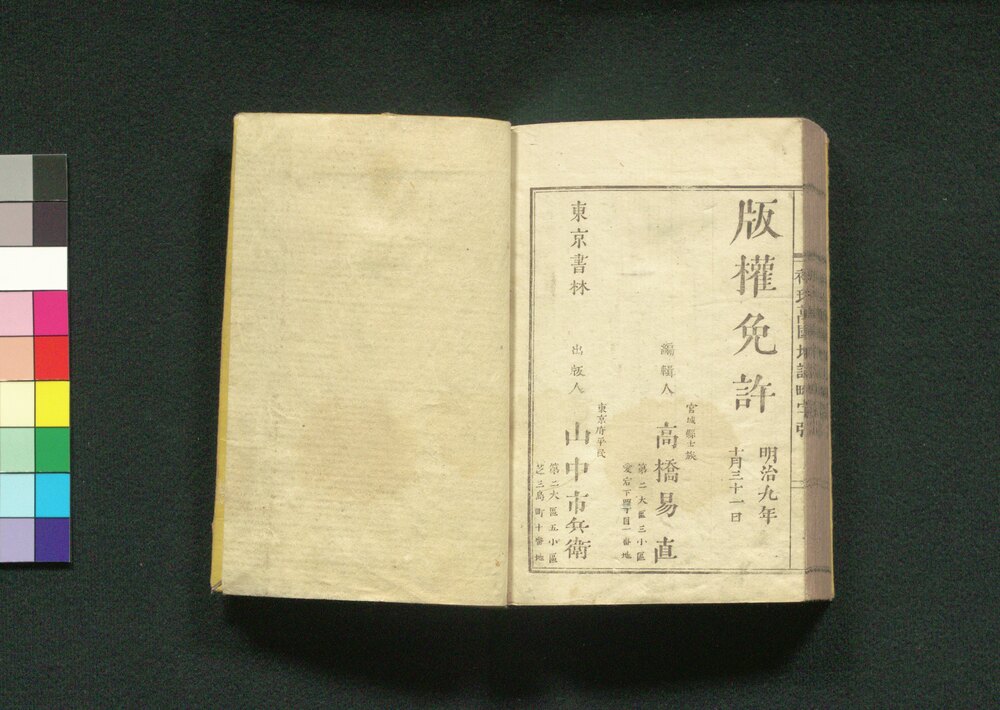 版權免許
明治九年
十月三十一日
宮城縣士族
編輯人
高橋易直
第二大區三小區
愛宕下町
東京府平民
東京書林
出版人
山中市兵衛
第二大區五小區
芝三島町十番地